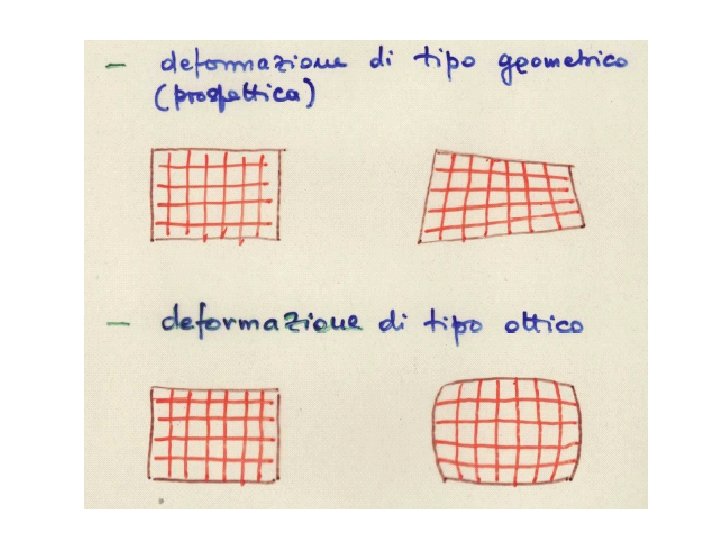 - deformazione di tipo geometrico
(prospettica)
- deformazione di tipo ottico